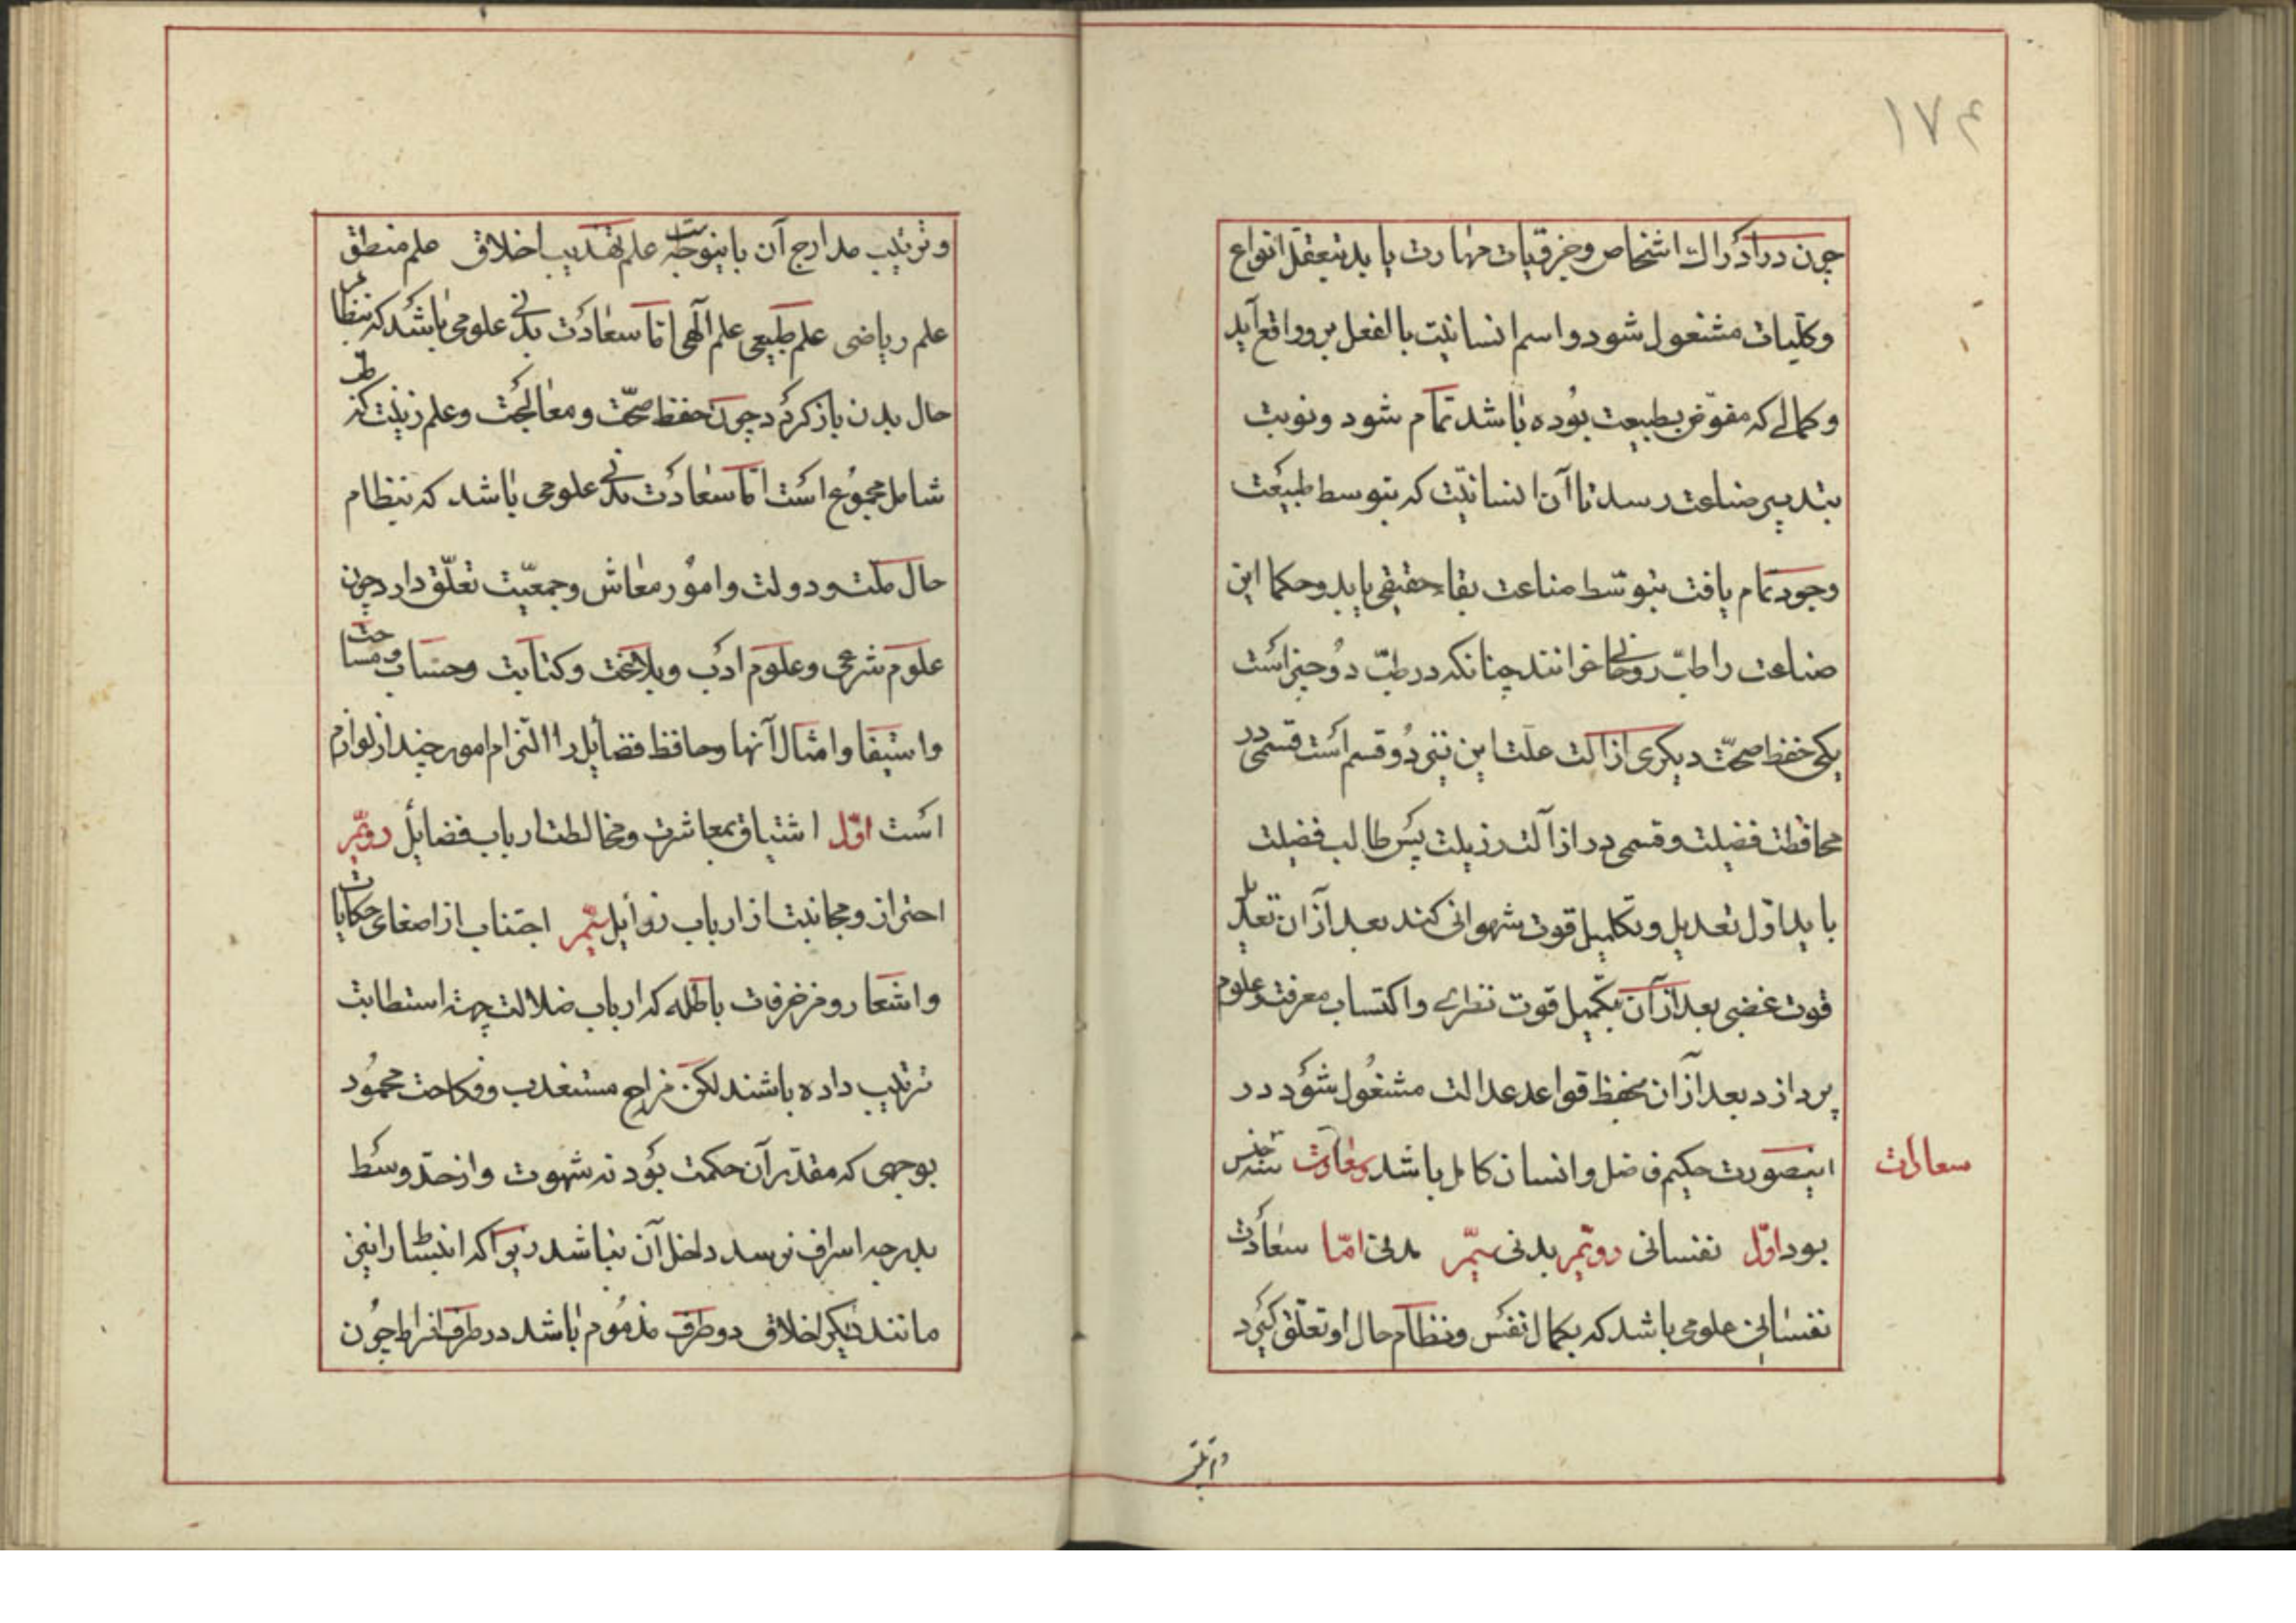 ۱۷۴
چون در ادراك اشخاص وجزویات مهارت یابد بتعقل انواع
وکلیات مشغول شود واسم انسانیت بالفعل برو واقع آید
وکمالی که مفوّض بطبیعت بوده باشد تمام شود ونوبت
بتدبیر صناعت رسد تا آن انسانیّت که بتوسط طبیعت
وجود تمام یافت بتوسّط صناعت بقاء حقیقی یابد وحکما این
صناعت را طبّ روحانی خوانند چنانکه در طبّ دو چیز است
یکی حفظ صحّت دیکری ازالت علت این نیز دو قسم است قسمی در
محافظت فضیلت وقسمی در ازالت رزیلت پس طالب فضیلت
باید اوّل تعدیل وتکمیل قوت شهوانی کند بعد از ان تعدیل
قوت غضبی بعد از آن تکمیل قوت نظری واکتساب معرفت وعلوم
پردازد بعد از ان بحفظ قواعد عدالت مشغول شود در
اینصورت حکیم فاضل وانسان کامل باشد وسعادت سه جنس
سعادات
بود اوّل نفسانی دویّم بدنی سیّم مدنی امّا سعادت
نفسانی علومی باشد که بکمال نفس ونظام حال او تعلّق کیرد
وترتیب
وترتیب مدارج آن باینوجهست علم تهذیب اخلاق علم منطق
علم ریاضی علم طبیعی علم آلهی امّا سعادت بدنی علومی باشد که بنظام
حال بدن باز کردد چون حفظ صحّت ومعالجت وعلم زینت که طب
شامل مجموع است امّا سعادت مدنی علومی باشد که بنظام
حال ملت ودولت وامور معاش وجمعیّت تعلّق دارد چون
علوم شرعی وعلوم ادب وبلاغت وکتابت وحساب ومساحت
واستیفا وامثال آنها وحافظ فضایل را التزام امور چند از لوازم
است اوّل اشتیاق بمعاشرت ومخالطت ارباب فضایل دویّم
احتراز ومجانبت از ارباب زوایل سیّم اجتناب از اصغای حکایات
واشعار ومزخرفات باطله که ارباب ضلالت جهت استطابت
ترتیب داده باشند لکن مزاح مستعذب وفکاحت محمود
بوجهی که مقدّر آن حکمت بود نه شهوت واز حدّ وسط
بدرجه اسراف نرسد داخل آن نباشد زیرا که انبساط را نیز
مانند دیکر اخلاق دو طرف مذموم باشد در طرف افراط چون